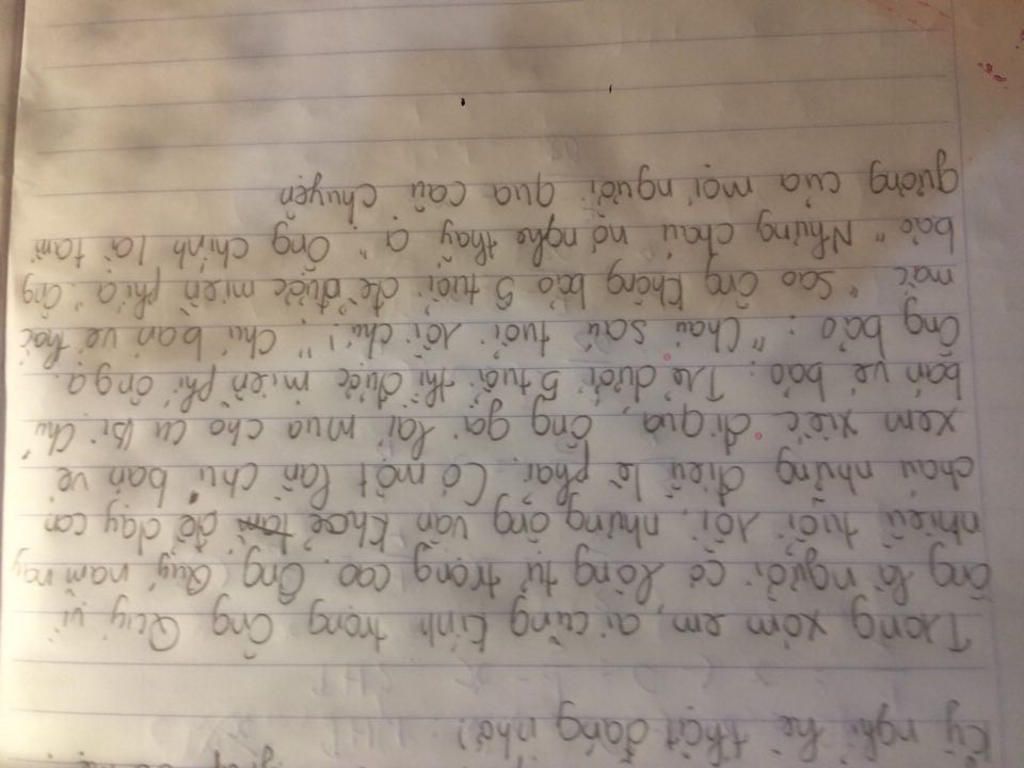 Kỳ nghỉ hè thật đáng nhớ!
Trong xóm em, ai cũng kính trọng ông Quý vì
ông là người có lòng tự trọng cao. Ông Quý năm nay
nhiều tuổi rồi, nhưng ông vẫn khoẻ để dạy con
cháu những điều lẽ phải. Có một lần chú bán vé
xem xiếc đi qua, ông gọi lại mua cho cu Bi. Chú
bán vé bảo: Trẻ dưới 5 tuổi thì được miễn phí ông ạ.
Ông bảo: "Cháu sáu tuổi rồi chú!", chú bán vé thắc
mắc "Sao ông không bảo 5 tuổi để được miễn phí ạ" ông
bảo "Nhưng cháu nó nghe thấy ạ" Ông chính là tấm
gương của mọi người qua câu chuyện